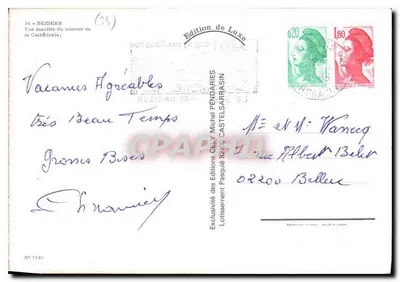 34 - BEZIERS
Vue insolite du sommet de
la Cathédrale.
(34)
Edition de Luxe
0,20
1,80
Vacances Agréables
très Beau Temps
Grosses Bises
Nº 5160
Exclusivité des Editions CELY Michel PENDARIES
Lotissement Pasqué 82 CASTELSARRASIN
CPAPHIL
Mme et Mr Wanecq
1 rue Albert Belet
02200 Belleu